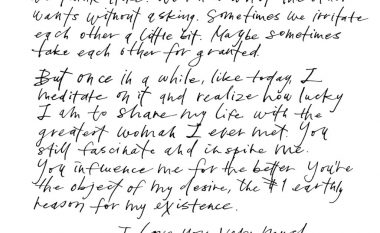 wants without asking. Sometimes we irritate
each other a little bit. Maybe sometimes
take each other for granted.
But once in a while, like today, I
meditate on it and realize how lucky
I am to share my life with the
greatest woman I ever met. You
still fascinate and inspire me.
You influence me for the better. You're
the object of my desire, the #1 earthly
reason for my existence.
I love you very much